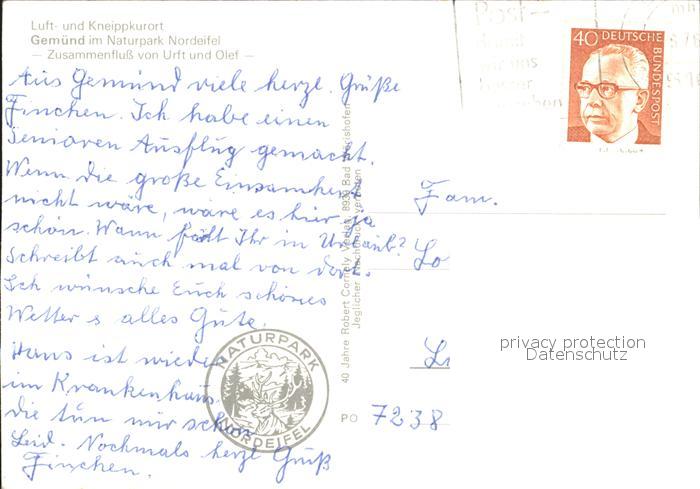 Luft- und Kneippkurort
Gemünd im Naturpark Nordeifel
— Zusammenfluß von Urft und Olef —
Aus Gemünd viele herzl. Grüße
Finchen. Ich habe einen
Senioren Ausflug gemacht.
Wenn die große Einsamkeit
nicht wäre, wäre es hier ja
schön. Wann fährt Ihr in Urlaub?
Schreibt auch mal von dort.
Ich wünsche Euch schönes
Wetter u alles Gute.
Hans ist wieder
im Krankenhaus
die tun mir schon
Leid. Nochmals herzl Gruß
Finchen.
NATURPARK
NORDEIFEL
40 Jahre Robert Cornely Verlag, 8939 Bad Wörishofen
Jeglicher Nachdruck verboten
Post-
40 DEUTSCHE
BUNDESPOST
Fam.
Lo
privacy protection
Datenschutz
PO 7238